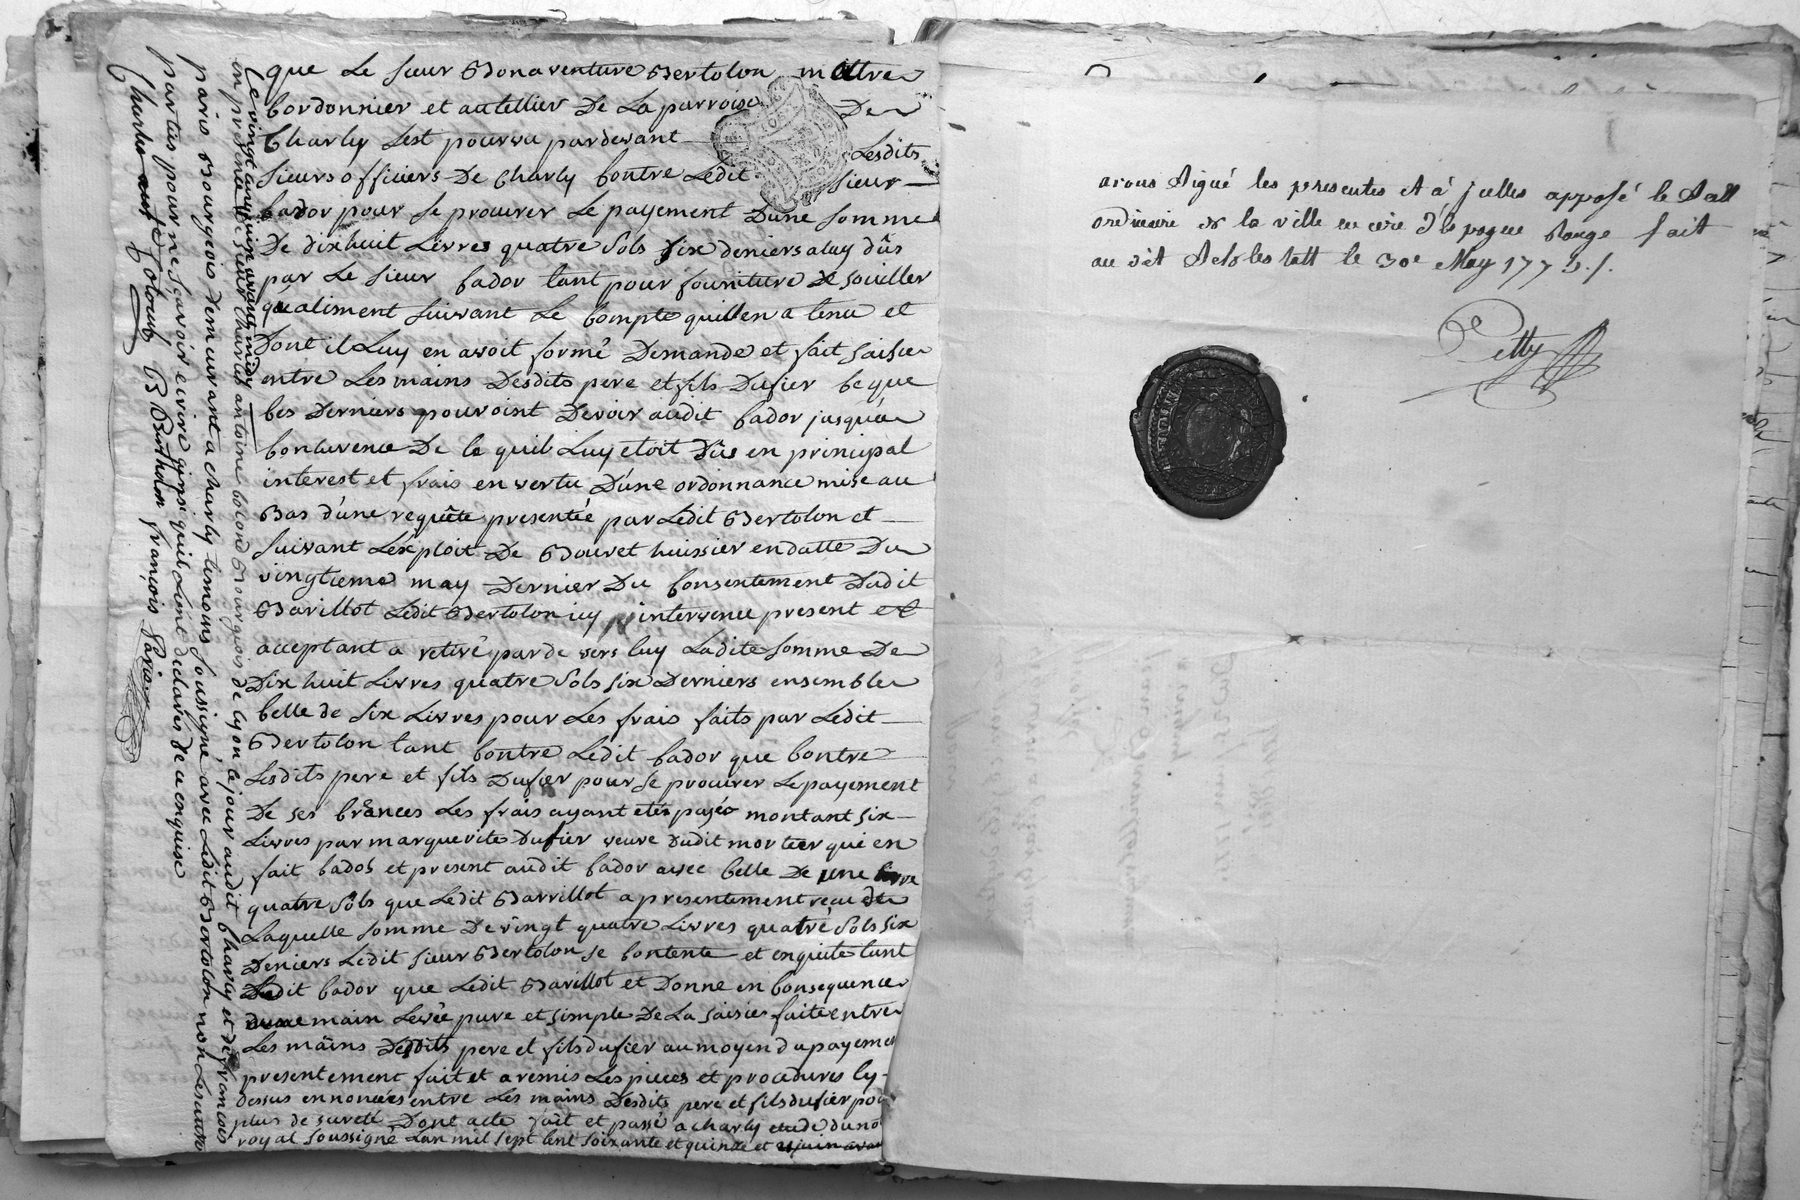 que Le sieur Bonaventure Bertolon maitre
Cordonnier et autellier De La parroisse De
Charly Sest pourvu pardevant Lesdits
sieurs officiers De Charly Contre Ledit sieur
Cador pour se procurer Le payement Dune somme
De dixhuit Livres quatre Sols six deniers a luy dûs
par Le sieur Cador tant pour fourniture de souiller
qu'aliment suivant Le Compte quil en a tenu et
Dont il Luy en avoit formé Demande et fait saisie
entre Les mains Desdits pere et fils Dufier Ce que
Ces Derniers pouvoint Devoir audit Cador jusqu'a
Concurence De Ce quil Luy etoit Dûe en principal
interest et frais en vertu D'une ordonnance mise au
Bas d'une requête presentée par Ledit Bertolon et
suivant Lexploit De Bouvet huissier en datte Du
vingtieme may Dernier Du Consentement Dudit
Barillot Ledit Bertolon icy intervenu present et
acceptant a retiré par de vers luy Ladite Somme De
Dix huit Livres quatre Sols six Derniers ensemble
Celle de six Livres pour Les frais faits par Ledit
Bertolon tant Contre Ledit Cador que Contre
Lesdits pere et fils Dufier pour se procurer Le payement
De ses Créances Les frais ayant etés payés montant six
Livres par marguerite Dufier veuve dudit mortier qui en
fait Cados et present audit Cador avec Celle De une livre
quatre Sols que Ledit Barrillot a presentement reçu de
Laquelle somme De vingt quatre Livres quatre Sols six
Deniers Ledit sieur Bertolon se Contente et en quitte tant
Ledit Cador que Ledit Barillot et Donne en Consequence
main Levée pure et simple De La saisie faite entre
Les mains Desdits pere et fils dufier au moyen du payement
presentement fait et a remis Les pieces et procedures Cy
dessus ennoncées entre Les mains Desdits pere et fils dufier pour
plus de sureté Dont acte fait et passé a charly etude du no
royal soussigné Lan mil sept Cent soixante et quinze et
Le vingt cinq juin avant midy
en presence de sieur Charles antoine Cocond Bourgeois de Lyon ce jour audit Charly et de françois
paris Bourgeois demeurant a charly temoins soussigné avec Ledit Bertolon non Les autres
parties pour ne sçavoir ecrire ainsi quils L'ont declarés de ce enquise
Charles B Bertholon françois Paris
avons signé les presentes et à jcelles apposé le scell
ordinaire de la ville en cire d'Espagne Rouge fait
au dit Schlestatt le 30e May 1775./.